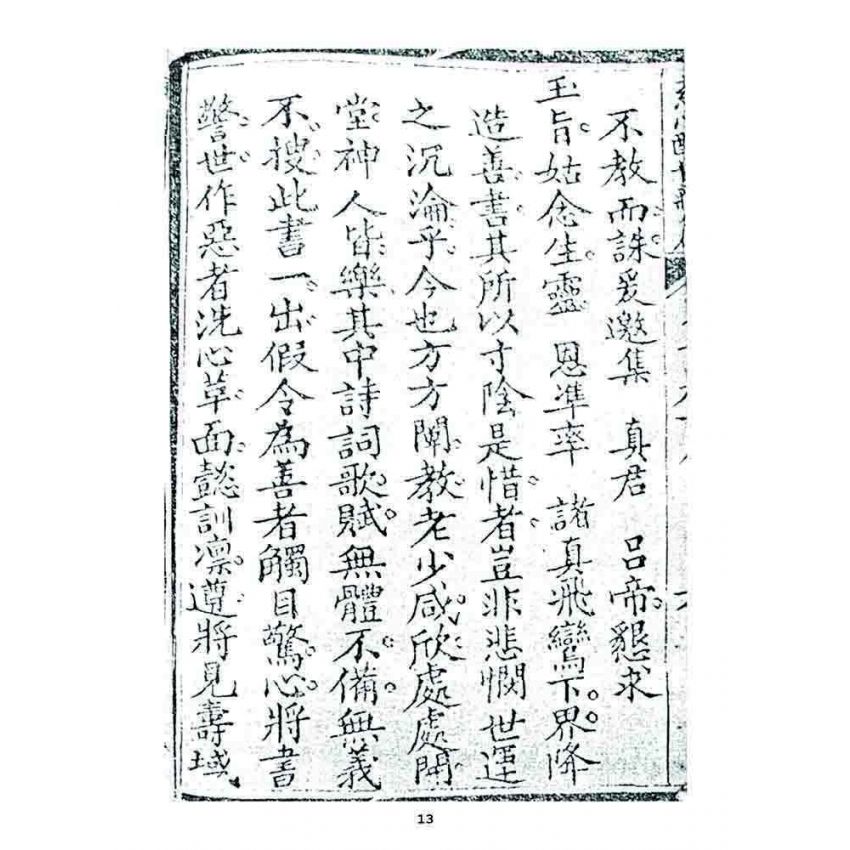 不教而誅爰邀集　真君　呂帝懇求
玉旨姑念生靈　恩準率　諸真飛鸞下界降
造善書其所以寸陰是惜者豈非悲憫世運
之沉淪乎今也方方闡教老少咸欣處處開
堂神人皆樂其中詩詞歌賦無體不備無義
不搜此書一出假令為善者觸目驚心將書
警世作惡者洗心革面懿訓凛遵將見壽域
13